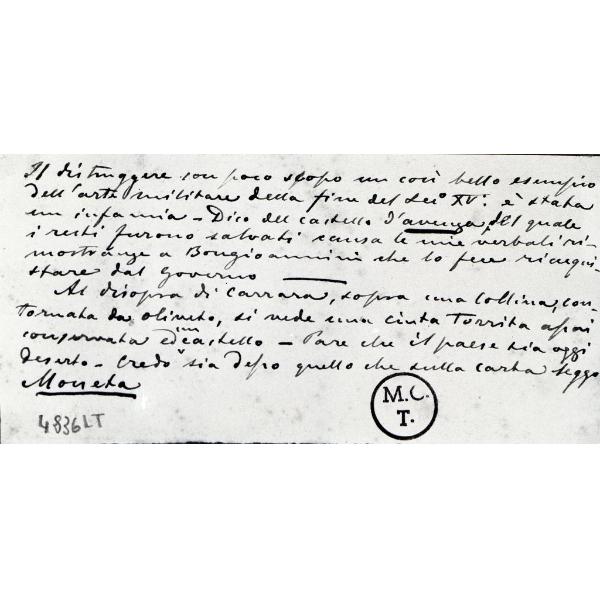 Il distruggere con poco scopo un così bello esempio
dell'arte militare della fine del Sec° XV: è stata
un infamia - Dico del castello d'avenza, del quale
i resti furono salvati causa le mie verbali ri-
mostranze a Bongioannini che lo fece riacqui-
stare dal Governo
Al disopra di Carrara, sopra una Collina, con-
tornata da oliveto, si vede una cinta turrita assai
conservata ed un castello - Pare che il paese sia oggi
deserto - Credo sia desso quello che sulla carta leggo
Moneta
4836LT
M.C.
T.